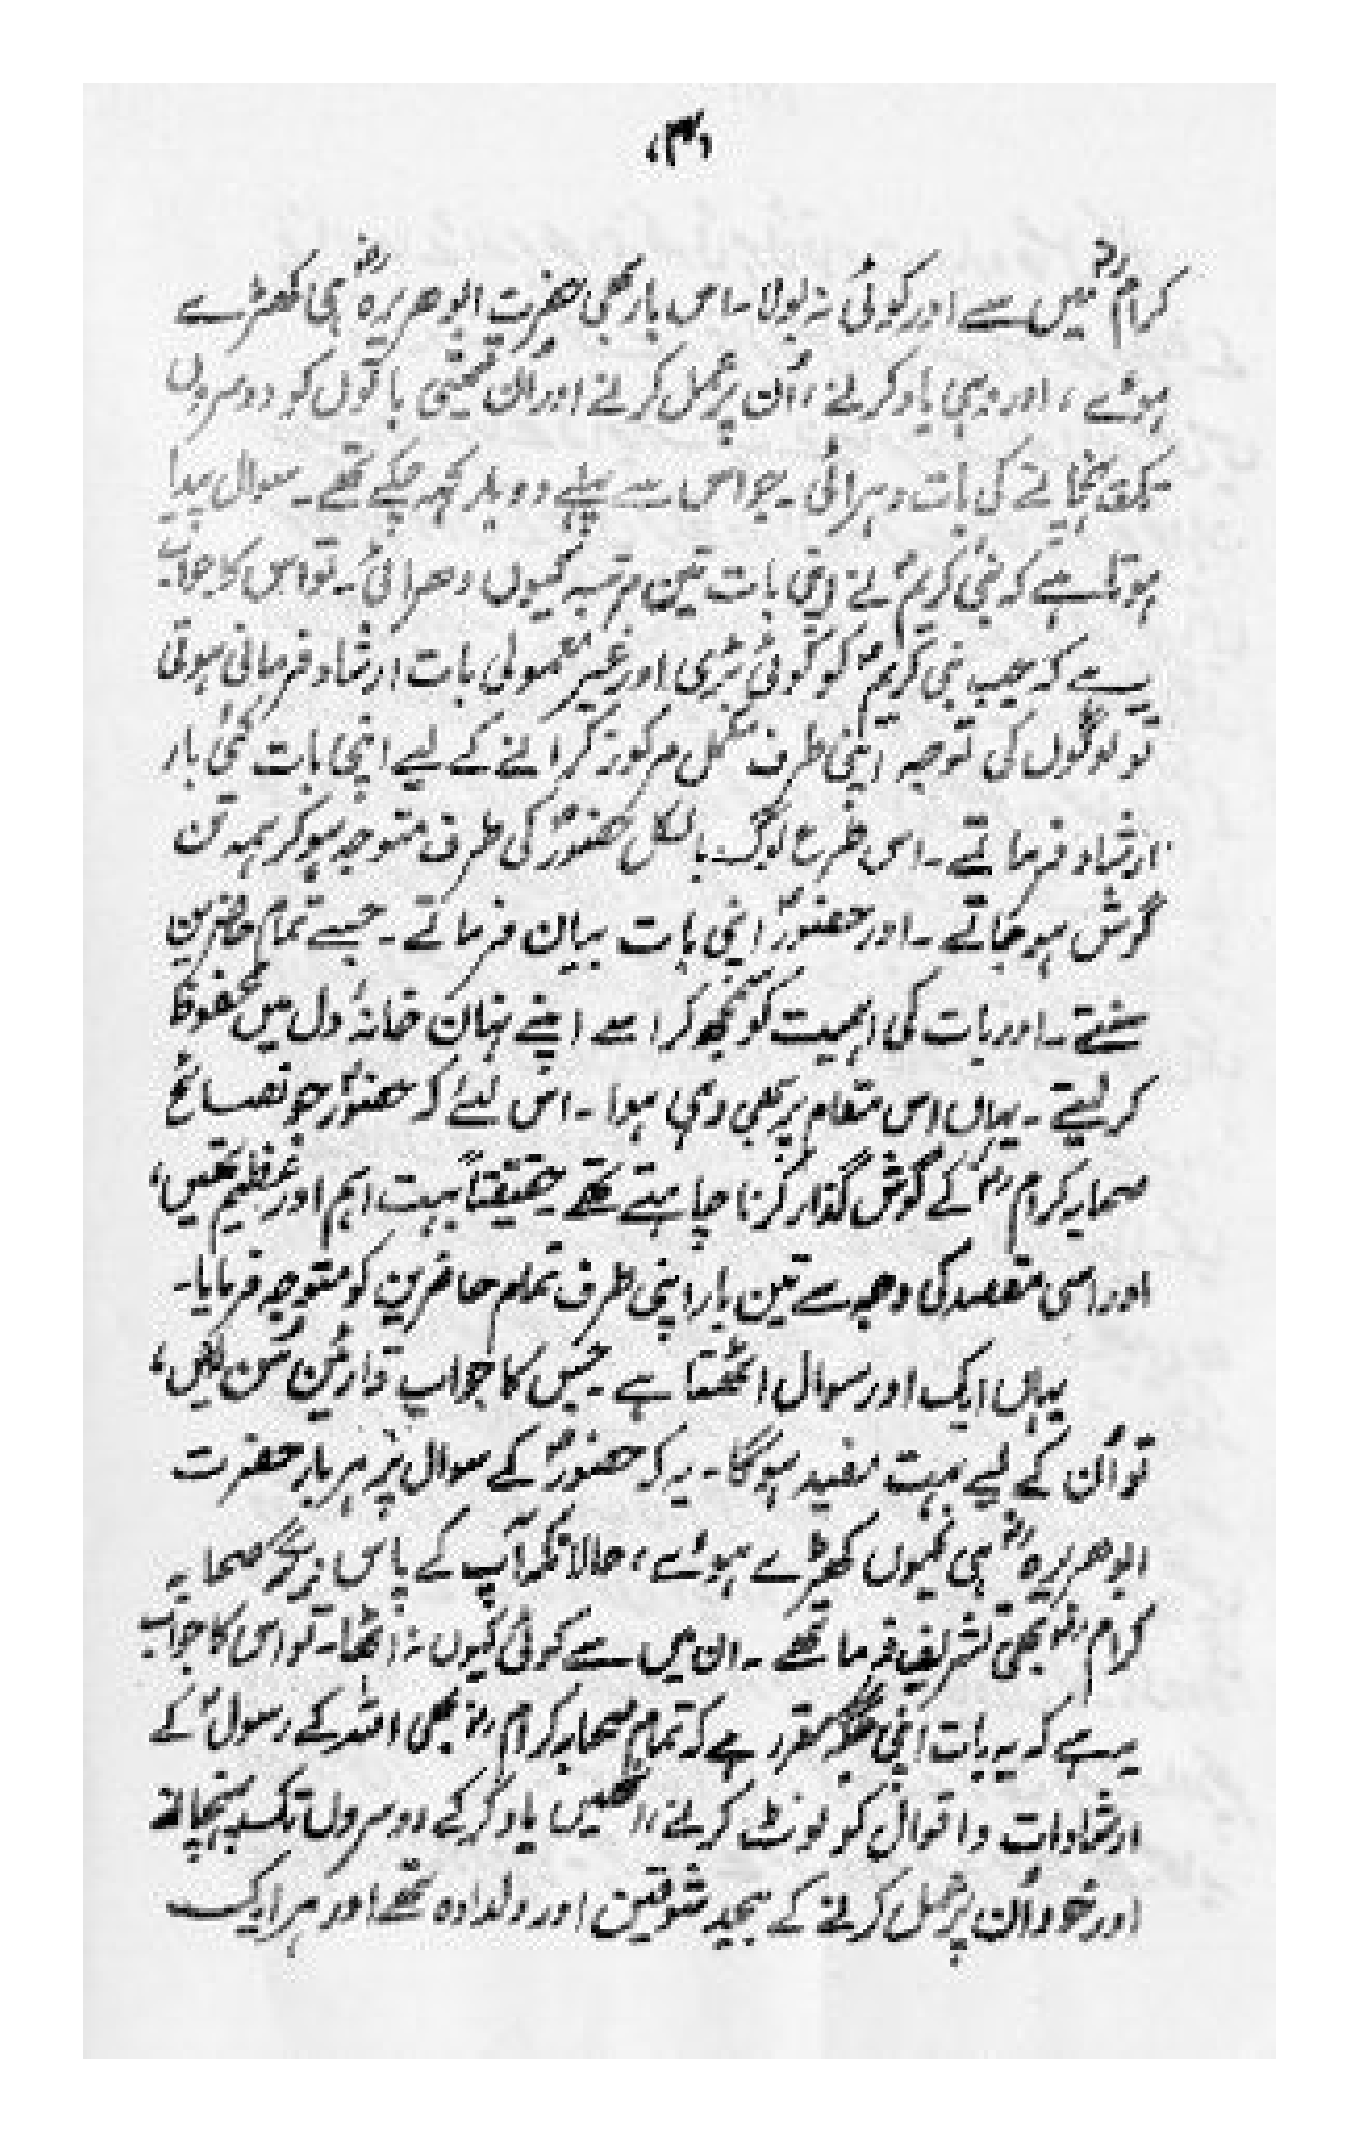 ،۳،
کرامؓ میں سے اور کوئی نہ بولا۔ اس بار بھی حضرت ابوھریرہؓ ہی کھڑے
ہوئے، اور وہی یاد کرنے، اُن پر عمل کرنے اور اُن قیمتی باتوں کو دوسروں
تک پہنچانے کی بات دہرائی۔ جو اس سے پہلے دوبار کہہ چکے تھے۔ سوال پیدا
ہوتا ہے کہ نبی کریمؐ نے اپنی بات تین مرتبہ کیوں دھرائی۔ تو اس کا جواب
یہ ہے کہ جب نبی کریمؐ کو کوئی بڑی اور غیر معمولی بات ارشاد فرمانی ہوتی
تو لوگوں کی توجہ اپنی طرف مکمل مرکوز کرانے کے لیے اپنی بات کئی بار
ارشاد فرماتے۔ اس طرح لوگ بالکل حضورؐ کی طرف متوجہ ہو کر ہمہ تن
گوش ہو جاتے۔ اور حضورؐ اپنی بات بیان فرماتے۔ جسے تمام حاضرین
سنتے۔ اور بات کی اہمیت کو سمجھ کر اسے اپنے نہاں خانۂ دل میں محفوظ
کر لیتے۔ یہاں اس مقام پر بھی وہی ہوا۔ اس لئے کہ حضورؐ جو نصائح
صحابہ کرامؓ کے گوش گذار کرنا چاہتے تھے حقیقتاً بہت اہم اور عظیم تھیں،
اور اسی مقصد کی وجہ سے تین بار اپنی طرف تمام حاضرین کو متوجہ فرمایا۔
یہاں ایک اور سوال اٹھتا ہے۔ جس کا جواب قارئین سُن لیں،
تو اُن کے لیے بہت مفید ہوگا۔ یہ کہ حضورؐ کے سوال پر ہر بار حضرت
ابوھریرہؓ ہی کیوں کھڑے ہوئے، حالانکہ آپ کے پاس دیگر صحابہ
کرامؓ بھی تشریف فرما تھے۔ ان میں سے کوئی کیوں نہ اٹھا۔ تو اس کا جواب
یہ ہے کہ یہ بات اپنی جگہ مقدر ہے کہ تمام صحابہ کرامؓ بھی اللہ کے رسولؐ کے
ارشادات و اقوال کو نوٹ کرنے، انھیں یاد کر کے دوسروں تک پہنچانے
اور خود اُن پر عمل کرنے کے بیحد شوقین اور دلدادہ تھے اور ہر ایک